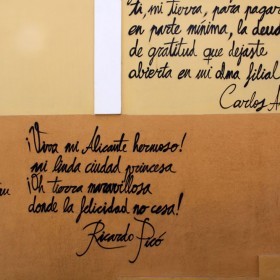 ti, mi tierra, para pagar
en parte mínima, la deud
de gratitud que dejaste
abierta en mi alma filial
Carlos A
¡Viva mi Alicante hermoso!
mi linda ciudad princesa
¡Oh tierra maravillosa
donde la felicidad no cesa!
Ricardo Picó